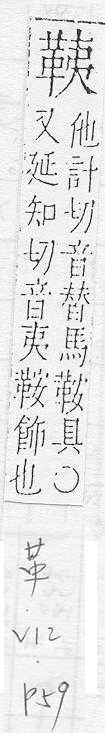 鞑
他計切音替馬鞍具○
又延知切音夷鞍飾也
革
·
V12
·
P59